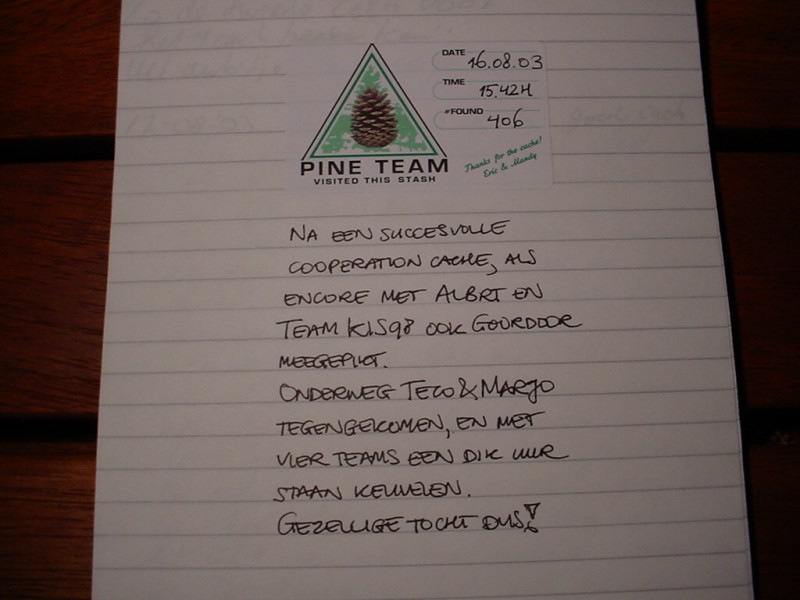 DATE 16.08.03
TIME 15.42H
#FOUND 406
PINE TEAM
VISITED THIS STASH
Thanks for the cache!
Eric & Mandy
NA EEN SUCCESVOLLE
COOPERATION CACHE, ALS
ENCORE MET ALBRT EN
TEAM KIS98 OOK GOURDOOR
MEEGEPIKT.
ONDERWEG TECO & MARJO
TEGENGEKOMEN, EN MET
VIER TEAMS EEN DIK UUR
STAAN KEUVELEN.
GEZELLIGE TOCHT DUS!